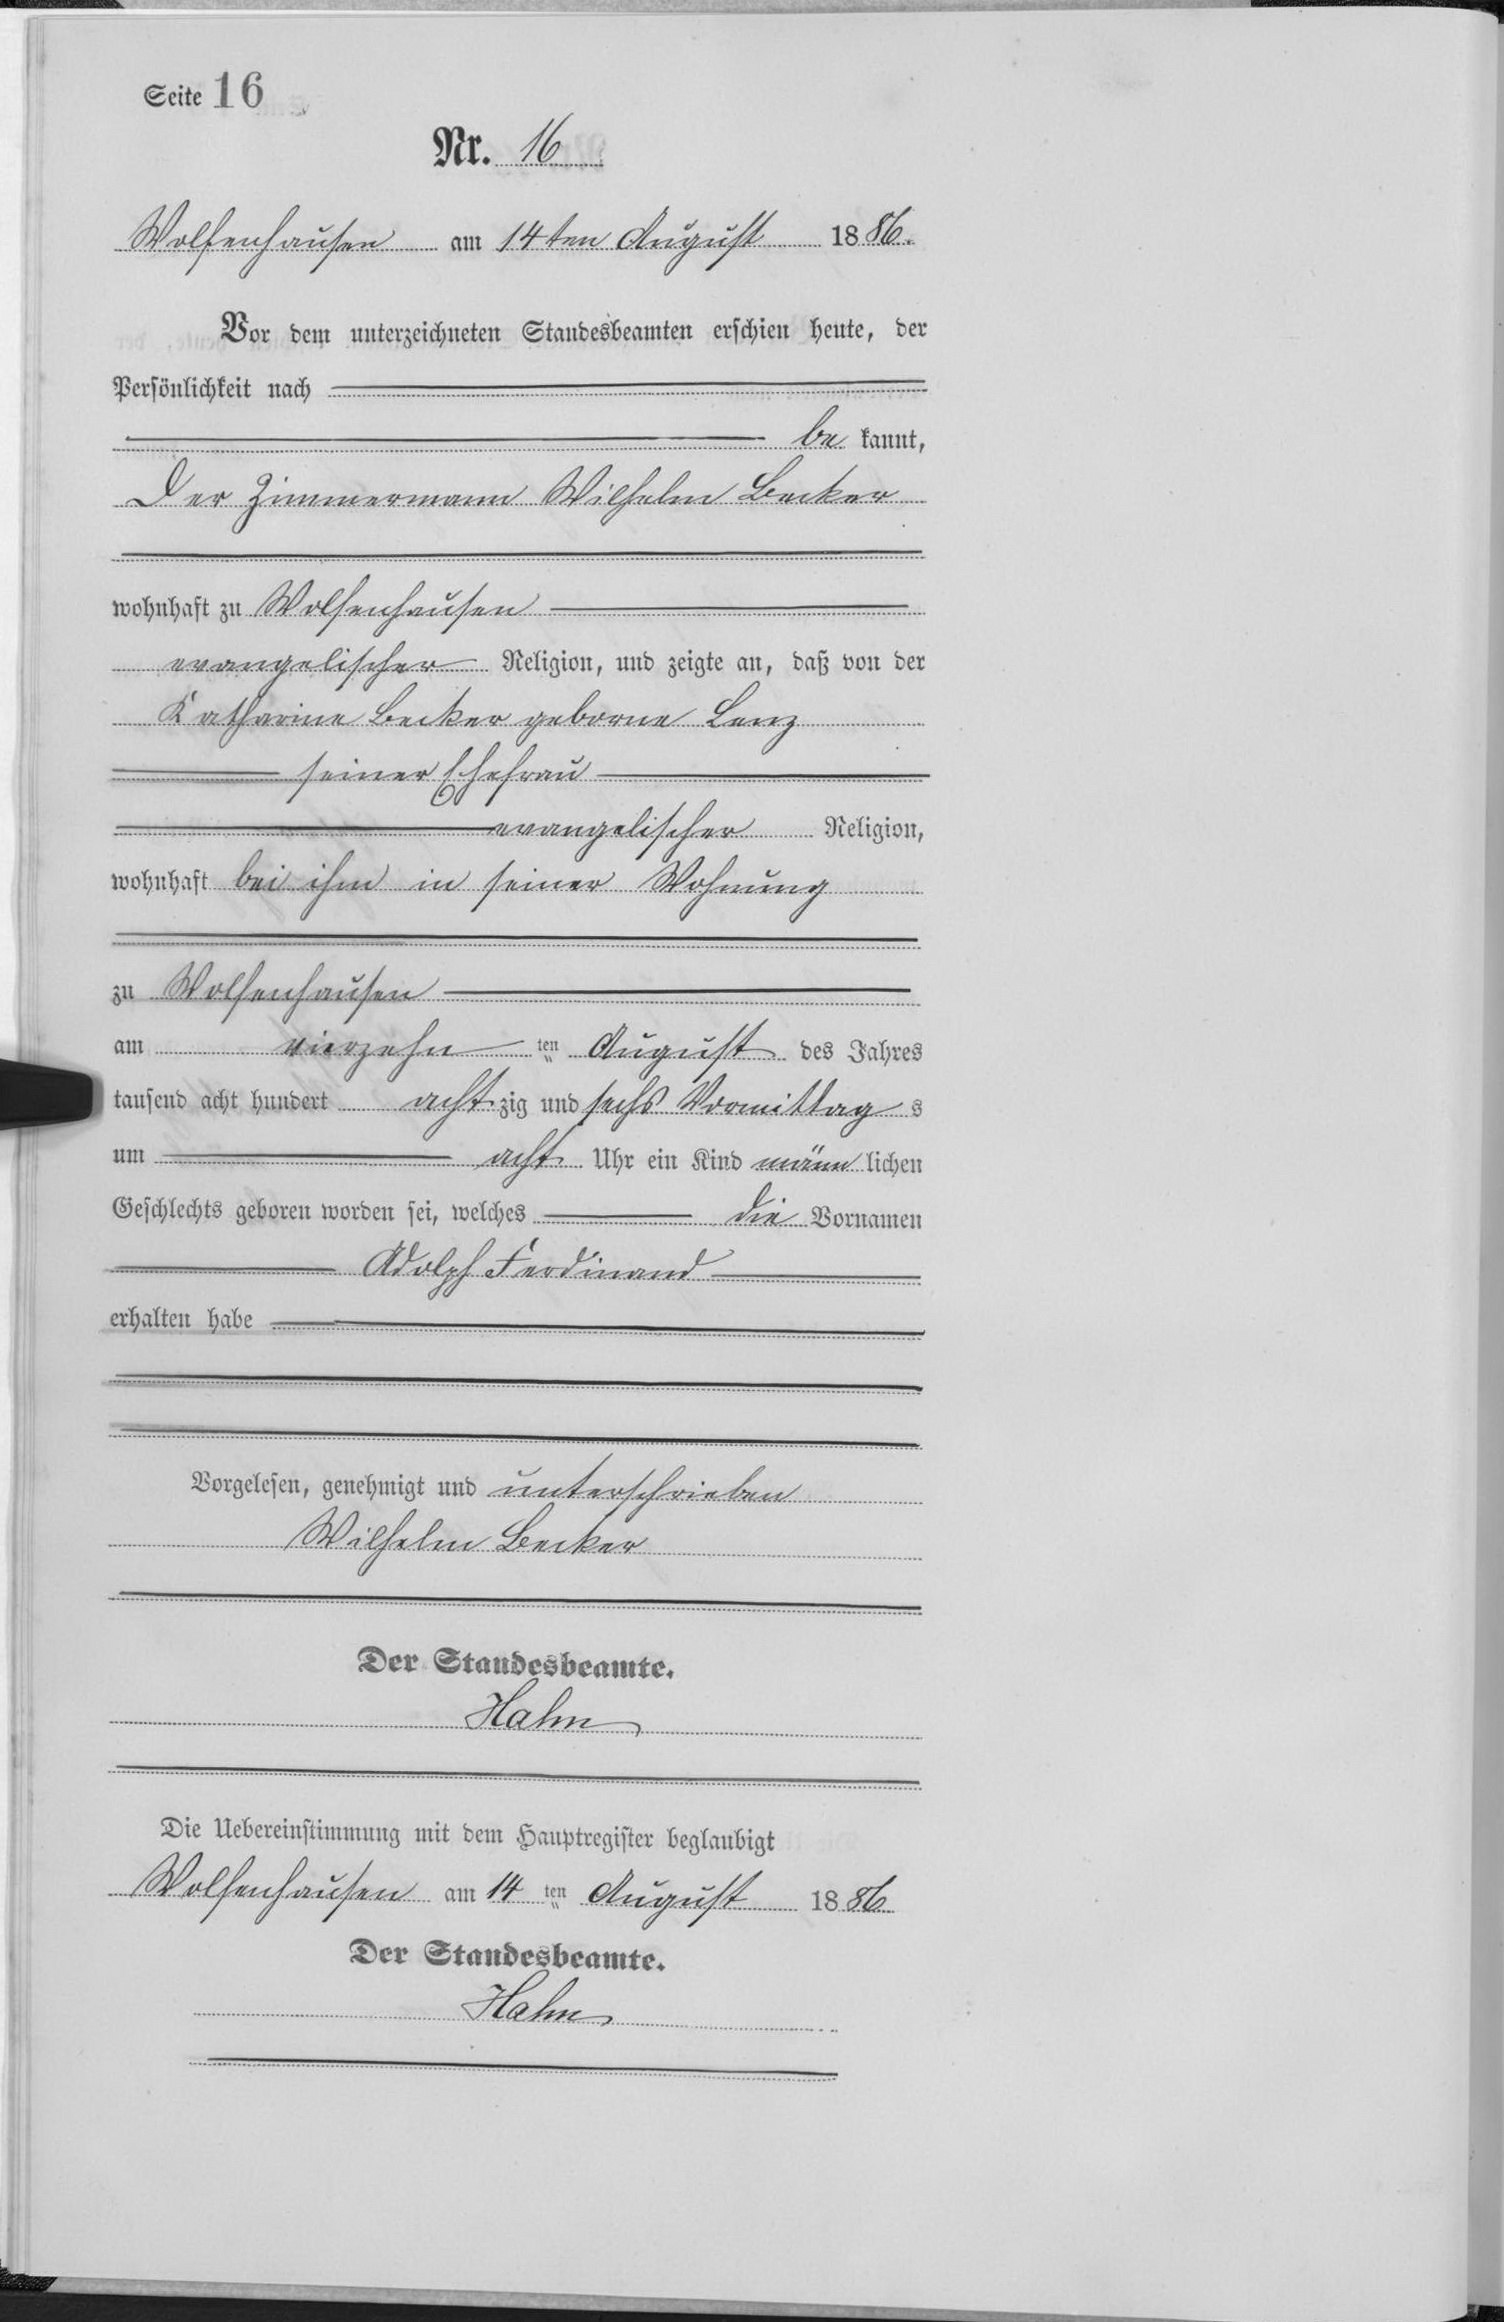 Seite 16
Nr. 16
Wolfenhausen am 14ten August 1886.
Vor dem unterzeichneten Standesbeamten erschien heute, der
Persönlichkeit nach
be kannt,
Der Zimmermann Wilhelm Becker
wohnhaft zu Wolfenhausen
evangelischer Religion, und zeigte an, daß von der
Katharine Becker geborne Lenz
seiner Ehefrau
evangelischer Religion,
wohnhaft bei ihm in seiner Wohnung
zu Wolfenhausen
am vierzehn ten August des Jahres
tausend acht hundert acht zig und sechs Vormittag s
um acht Uhr ein Kind männ lichen
Geschlechts geboren worden sei, welches die Vornamen
Adolph Ferdinand
erhalten habe
Vorgelesen, genehmigt und unterschrieben
Wilhelm Becker
Der Standesbeamte.
Hahn
Die Uebereinstimmung mit dem Hauptregister beglaubigt
Wolfenhausen am 14 ten August 1886
Der Standesbeamte.
Hahn